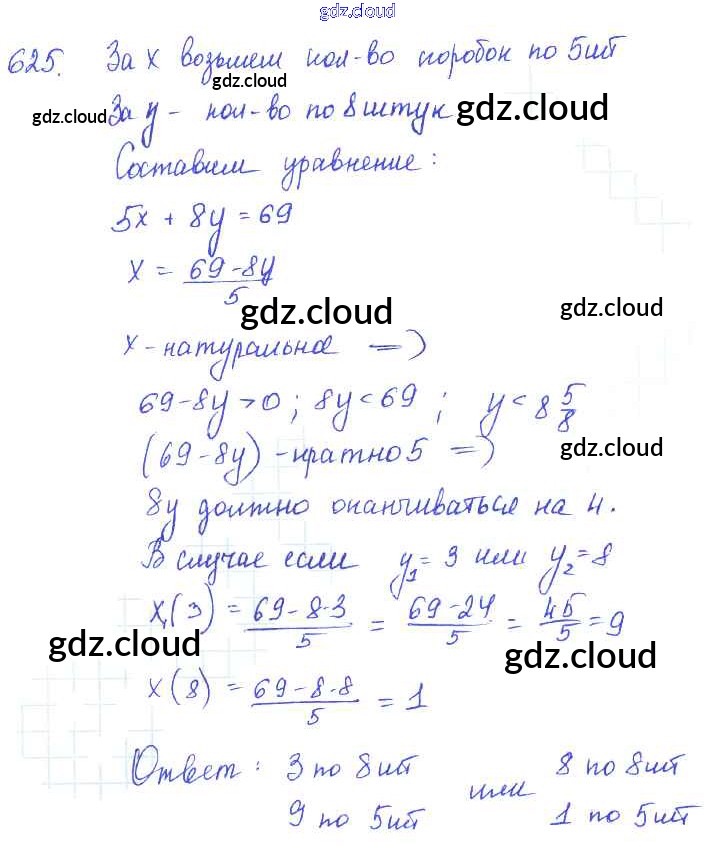 gdz.cloud
625. За x возьмем кол-во коробок по 5 шт
gdz.cloud
За y - кол-во по 8 штук gdz.cloud
gdz.cloud
Составим уравнение:
5x + 8y = 69
x = (69-8y)/5
gdz.cloud gdz.cloud
x - натуральное =>
69-8y>0; 8y<69; y<8 5/8
(69-8y) - кратно 5 =>
gdz.cloud gdz.cloud
8y должно оканчиваться на 4.
В случае если y₁=3 или y₂=8
x₁(3) = (69-8·3)/5 = (69-24)/5 = 45/5 = 9
gdz.cloud gdz.cloud
x(8) = (69-8·8)/5 = 1
Ответ: 3 по 8 шт или 8 по 8 шт
9 по 5 шт 1 по 5 шт